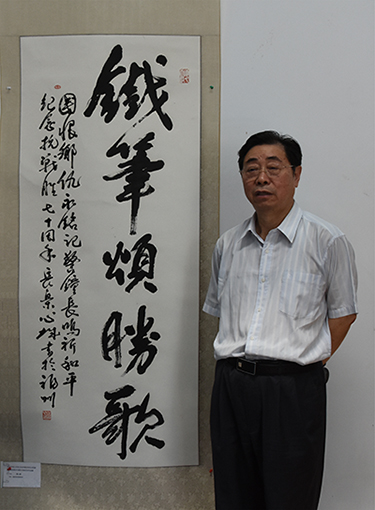 鐵筆頌勝歌
國恨鄉仇永銘記警鐘長鳴祈和平
紀念抗戰勝七十周年
書於福州